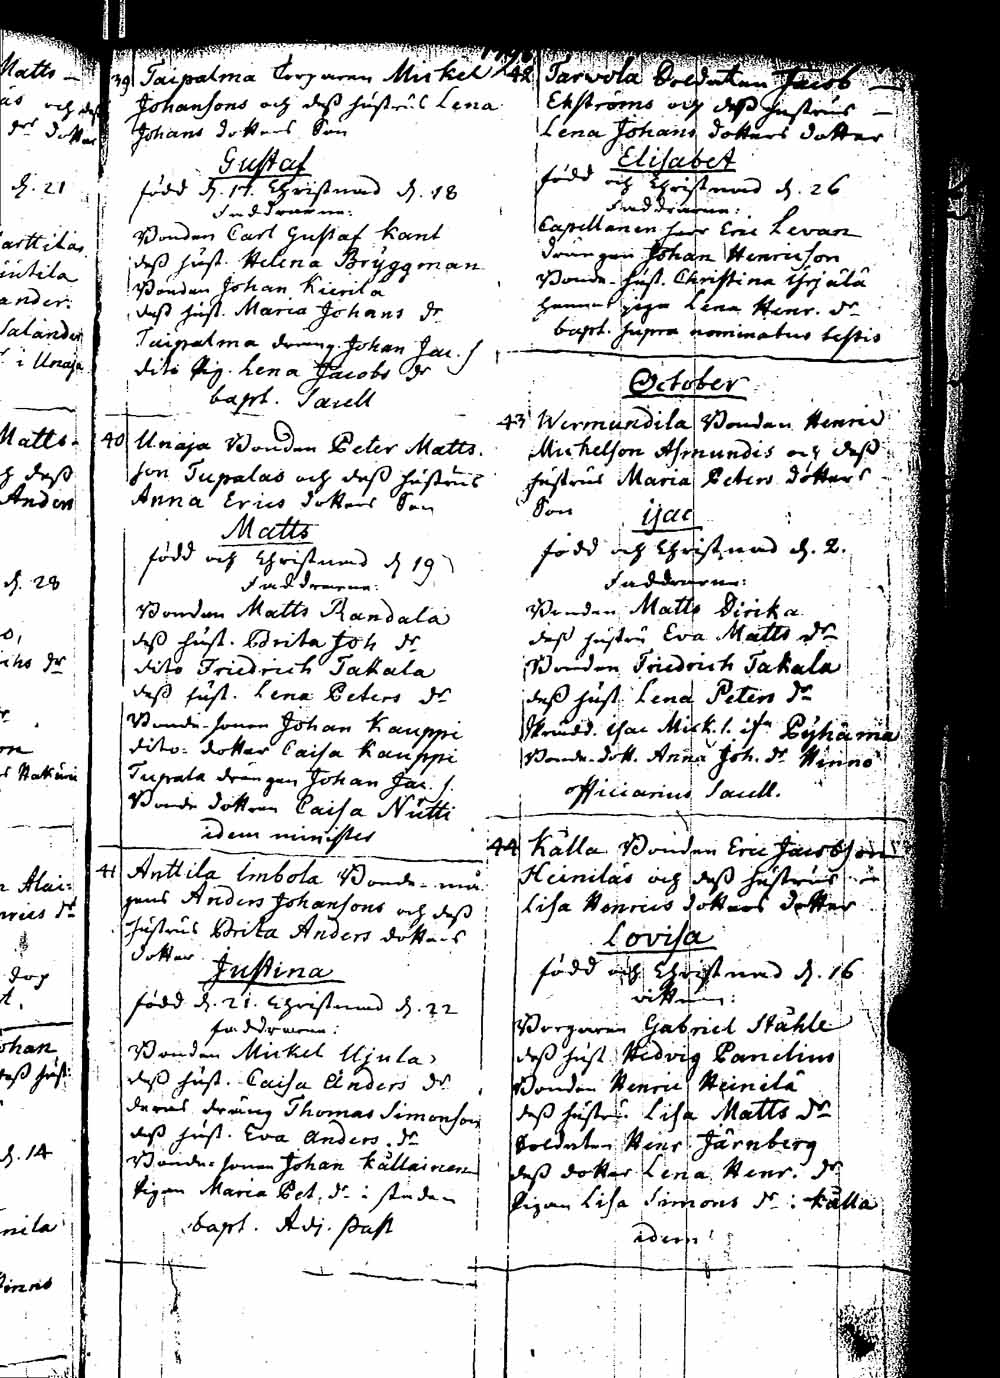 Matts
och dess
drs dotter
d. 21
anders
Salander
i Unaja
Matts-
dess
Anders
d. 28
Johan
d. 14
39 Taipalma Torparen Mickel
Johansons och dess hustrus Lena
Johans dotters Son
Gustaf
född d. 17. Christnad d. 18
Faddrarne:
Bonden Carl Gustaf Kant
dess hust. Helena Bryggman
Bonden Johan Kierila
dess hust. Maria Johans dr
Taipalma dräng Johan Jac. s
dito Pig. Lena Jacobs dr
bapt. Sacell
40 Unaja Bonden Peter Matts.
son Tupalas och dess hustrus
Anna Erics dotters Son
Matts
född och Christnad d. 19
Faddrarne:
Bonden Matts Randala
dess hust. Brita Joh dr
dito Friedrich Takala
dess hust. Lena Peters dr
Bonde-sonen Johan Kauppi
dito: dotter Caisa Kauppi
Tupala drängen Johan Jac. s.
Bonde dottren Caisa Nutti
idem minister
41 Anttila Imbola Bonde-må-
gens Anders Johansons och dess
hustrus Brita Anders dotters
dotter
Justina
född d. 21. Christnad d. 22
faddrarne:
Bonden Mickel Ujula
dess hust. Caisa Anders dr
deras dräng Thomas Simonson
dess hust. Eva Anders. dr
Bonde-sonen Johan Källainen
Pigan Maria Pet. dr i staden
bapt. Adj. Past
42 Tarvola Soldaten Jacob
Ekströms och dess hustrus
Lena Johans dotters dotter
Elisabet
född och Christnad d. 26
Faddrarne:
Capellanen herr Eric Levan
drängen Johan Henricson
Bonde-hust. Christina Yrjälä
hennes piga Lena Henr. dr
bapt. supra nominatus testis
October
43 Wermundila Bonden Henric
Mickelson Asmundis och dess
hustrus Maria Peters dotters
Son
isac
född och Christnad d. 2.
Faddrarne:
Bonden Matts Dirika
dess hustru Eva Matts dr
Bonden Friedrich Takala
dess hust. Lena Peters dr
Isac Mick. s. Pyhäma
Bonde-dott. Anna Joh. dr Hinno
officiarius Sacell.
44 Källa Bonden Eric Jacobson
Heinilas och dess hustrus
Lisa Henrics dotters dotter
Lovisa
född och Christnad d. 16
vittnen:
Borgaren Gabriel Ståhle
dess hust Hedvig Panelius
Bonden Henric Heinilä
dess hustru Lisa Matts dr
Soldaten Henr Järnberg
dess dotter Lena Henr. dr
Pigan Lisa Simons dr i Källa
idem